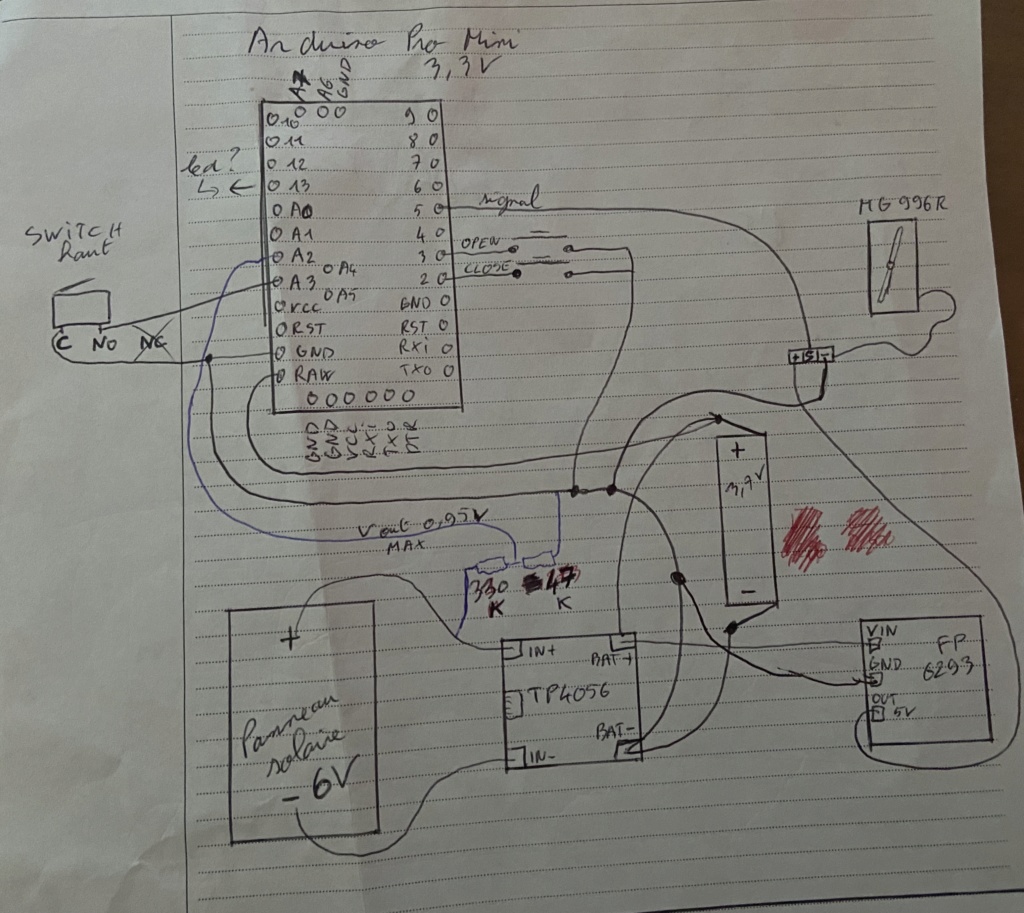 Arduino Pro Mini
3,3V
A7 A6 GND
10 9
11 8
12 7
led?
13 6
A0 5 signal
A1 4
A2 3 OPEN
A3 A4 2 CLOSE
VCC A5 GND
RST RST
GND RXi
RAW TXO
GND GND VCC RXi TXO DTR
SWiTCH
haut
C NO NC
MG 996R
+ S -
+
3,7V
-
Vout 0,95V
MAX
330 K
47 K
+
Panneau
solaire
- 6V
IN+ BAT+
TP4056
BAT-
IN-
VIN
FP
GND
6293
OUT
5V